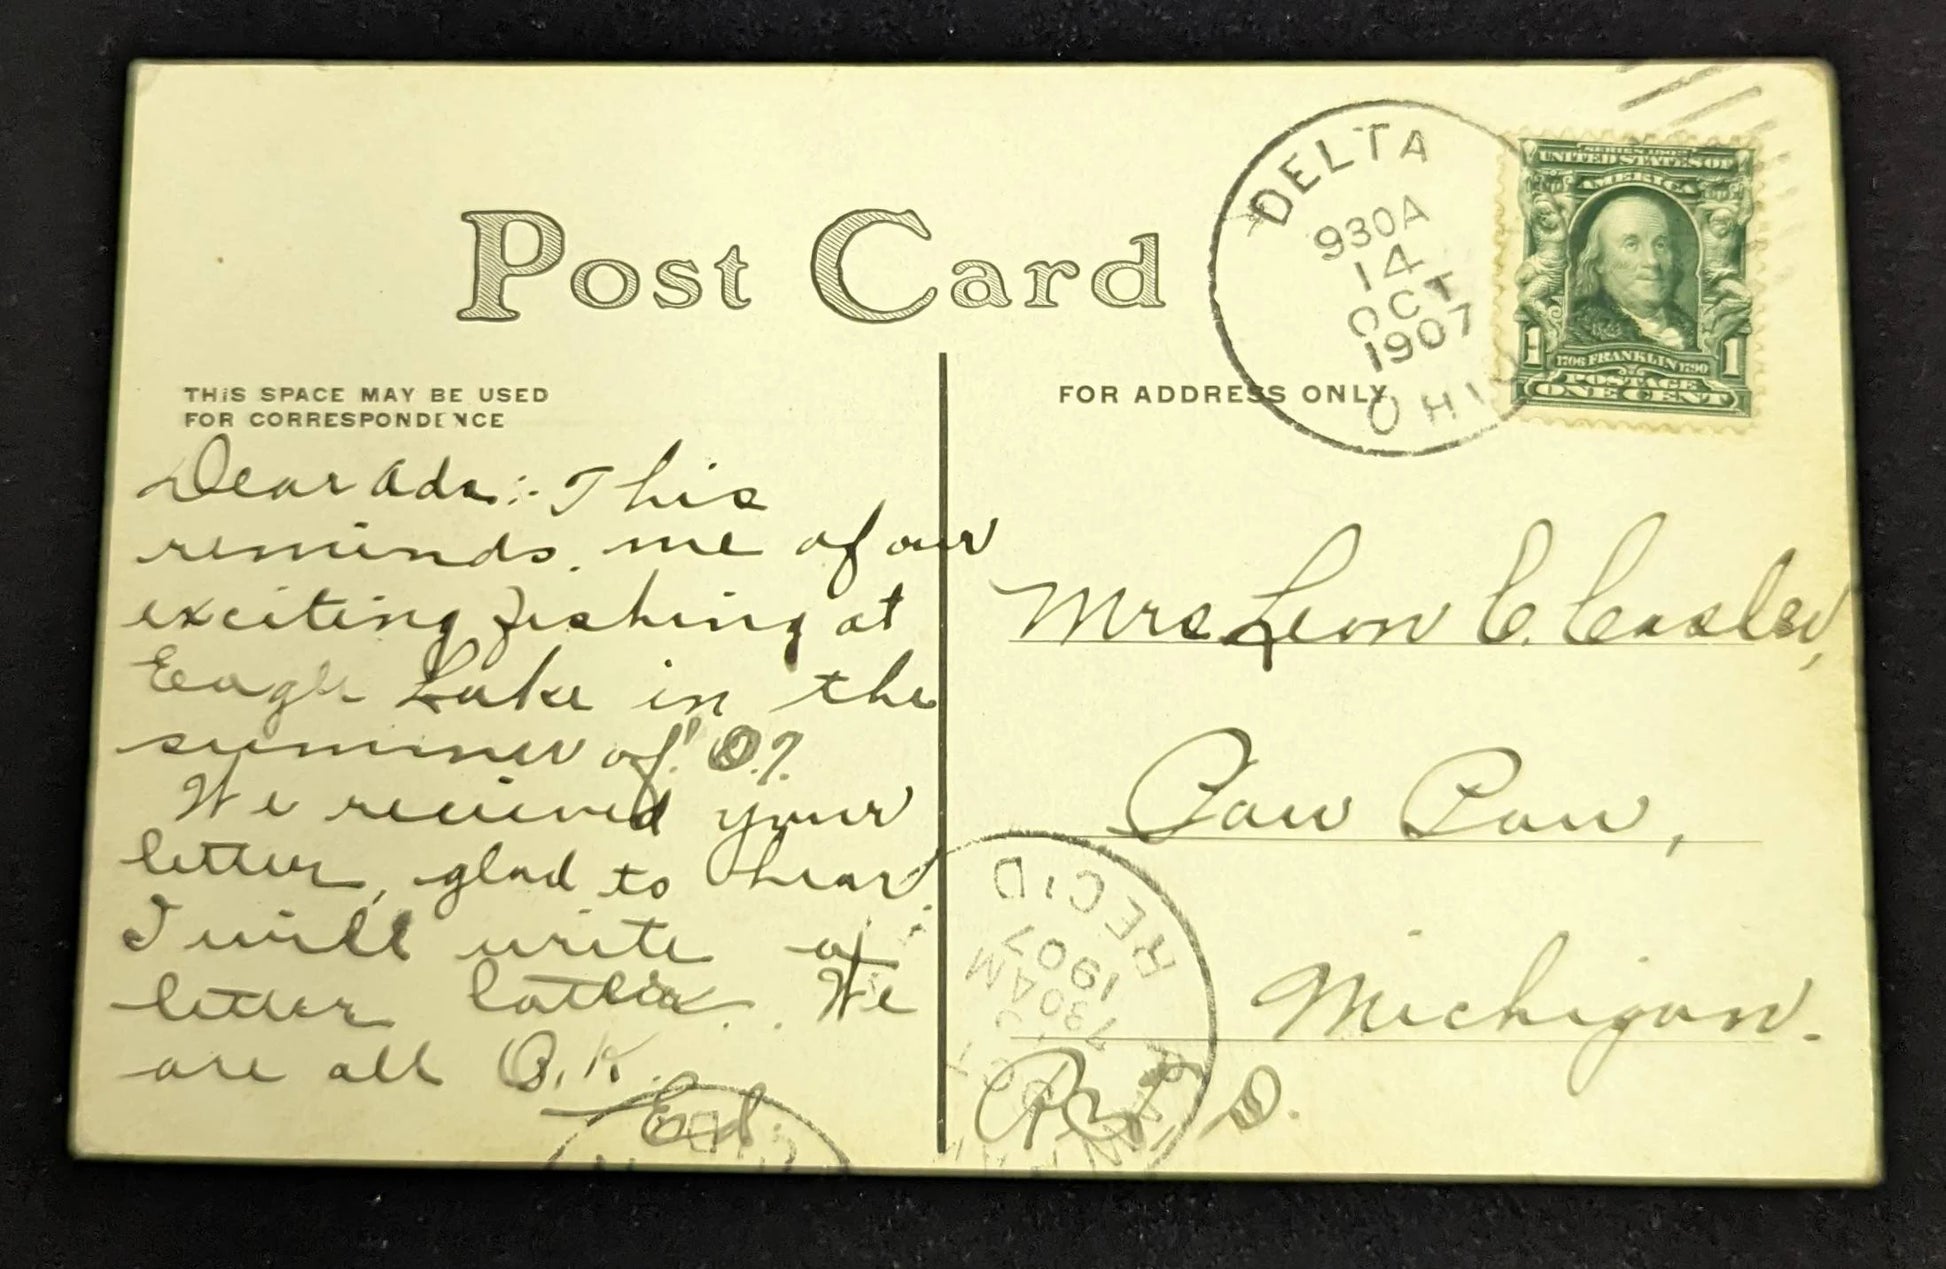 Post Card
THIS SPACE MAY BE USED
FOR CORRESPONDENCE
FOR ADDRESS ONLY
DELTA
930A
14
OCT
1907
OHIO
SERIES 1902
UNITED STATES OF
AMERICA
1 1706 FRANKLIN 1790 1
POSTAGE
ONE CENT
Dear Ada:- This
reminds me of our
exciting fishing at
Eagle Lake in the
summer of '07.
We recieved your
letter, glad to hear.
I will write a
letter latter. We
are all O.K.
Ed.
Mrs Leon C.
Paw Paw,
Michigan.
R.F.D.
REC'D
1907
730AM